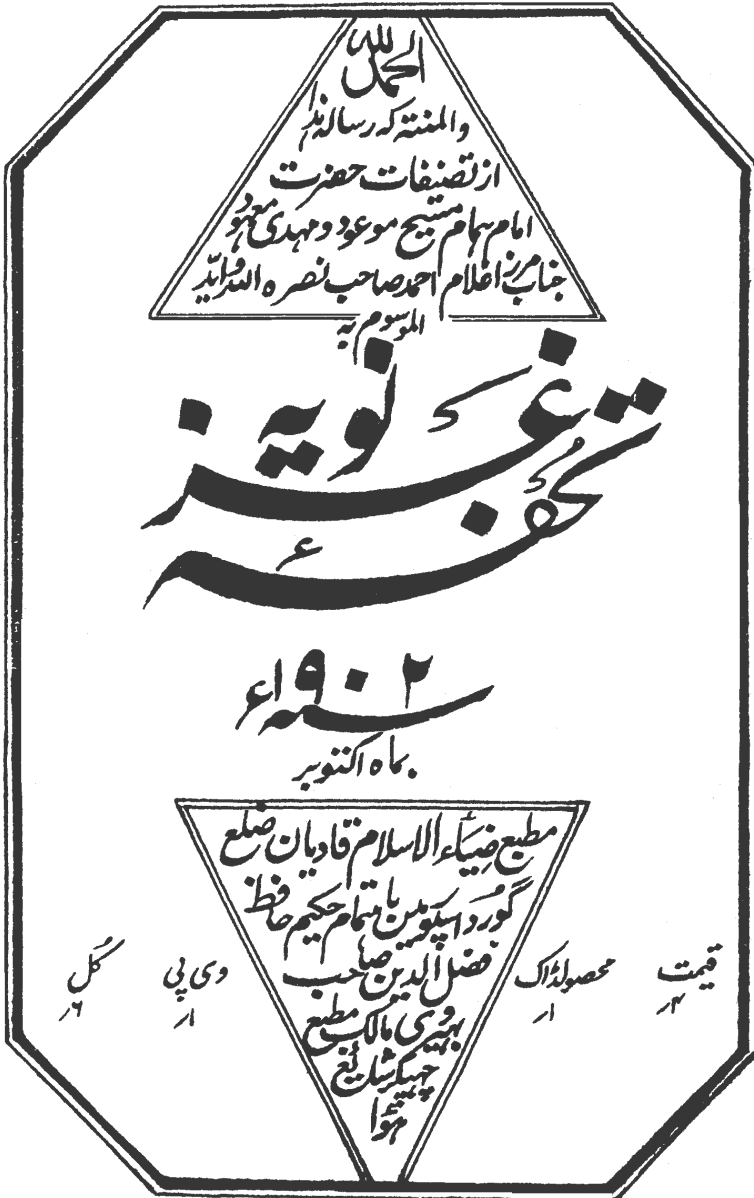 الحمدللہ
والمنتہ کہ رسالہ ہٰذا
از تصنیفات حضرت
امام ہمام مسیح موعود و مہدی معہود
جناب مرزا غلام احمد صاحب نصرہ اللہ و ایّد
الموسوم بہ
تحفۂ غزنویہ
سنہ ۱۹۰۲ء
بماہ اکتوبر
مطبع ضیاء الاسلام قادیان ضلع
گورداسپور مین باہتمام حکیم حافظ
فضل الدین صاحب
بہیروی مالک مطبع
چھپکر شائع
ہُوا
قیمت
۴؍
محصولڈاک
۱؍
وی پی
۱؍
کُل
۶؍